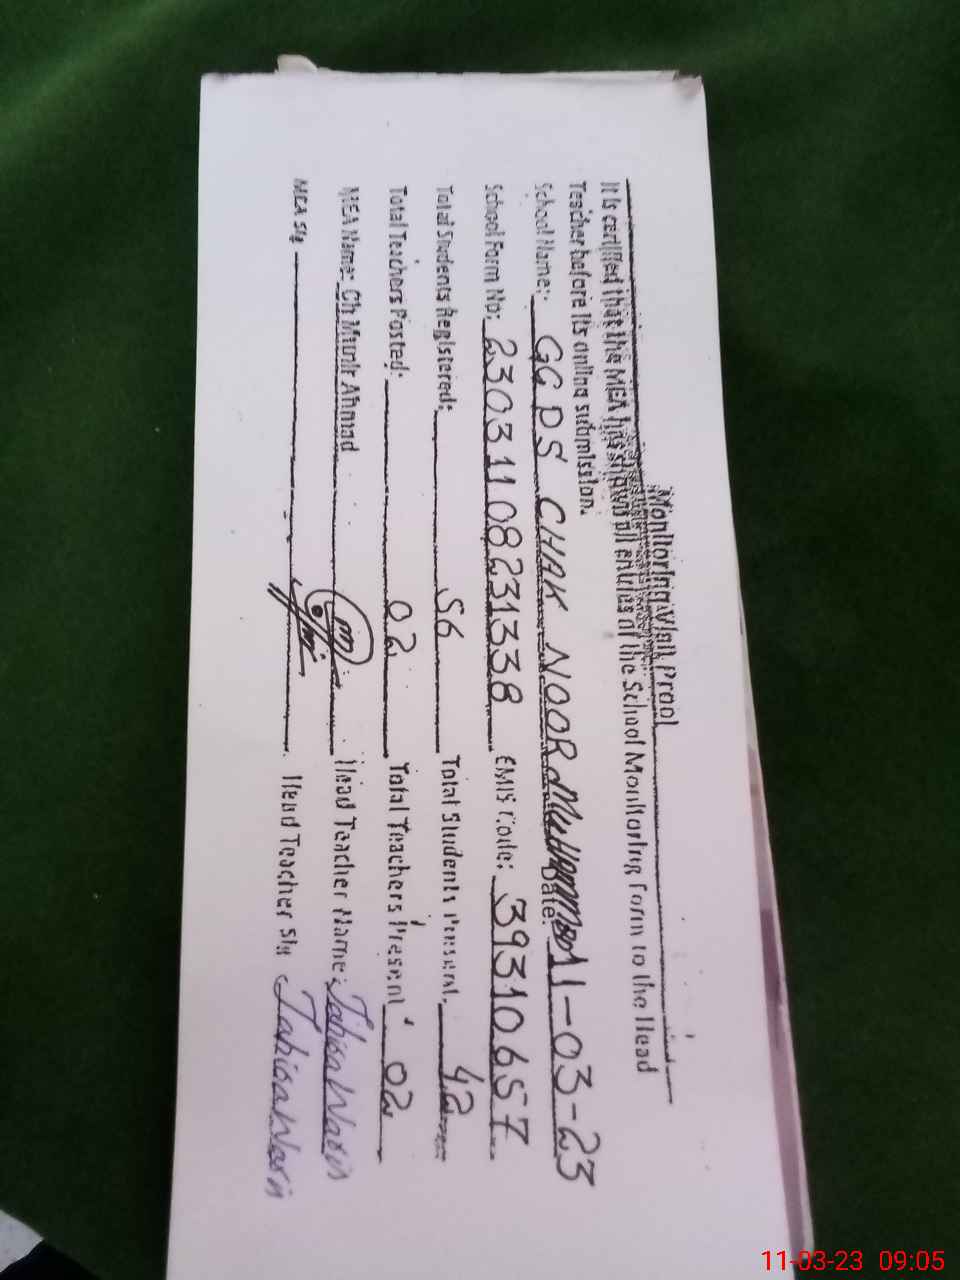 Monitoring Visit Proof
It is certified that the MEA has shown all entries of the School Monitoring Form to the Head
Teacher before its online submission.
School Name: GGPS CHAK NOOR Muhammad Date: 11-03-23
School Form No: 23031108231338 EMIS Code: 39310657
Total Students Registered: 56 Total Students Present: 42
Total Teachers Posted: 02 Total Teachers Present: 02
MEA Name: Ch Munir Ahmad Head Teacher Name: Tahira Waris
MEA Sig Head Teacher Sig Tahira Waris
11-03-23 09:05